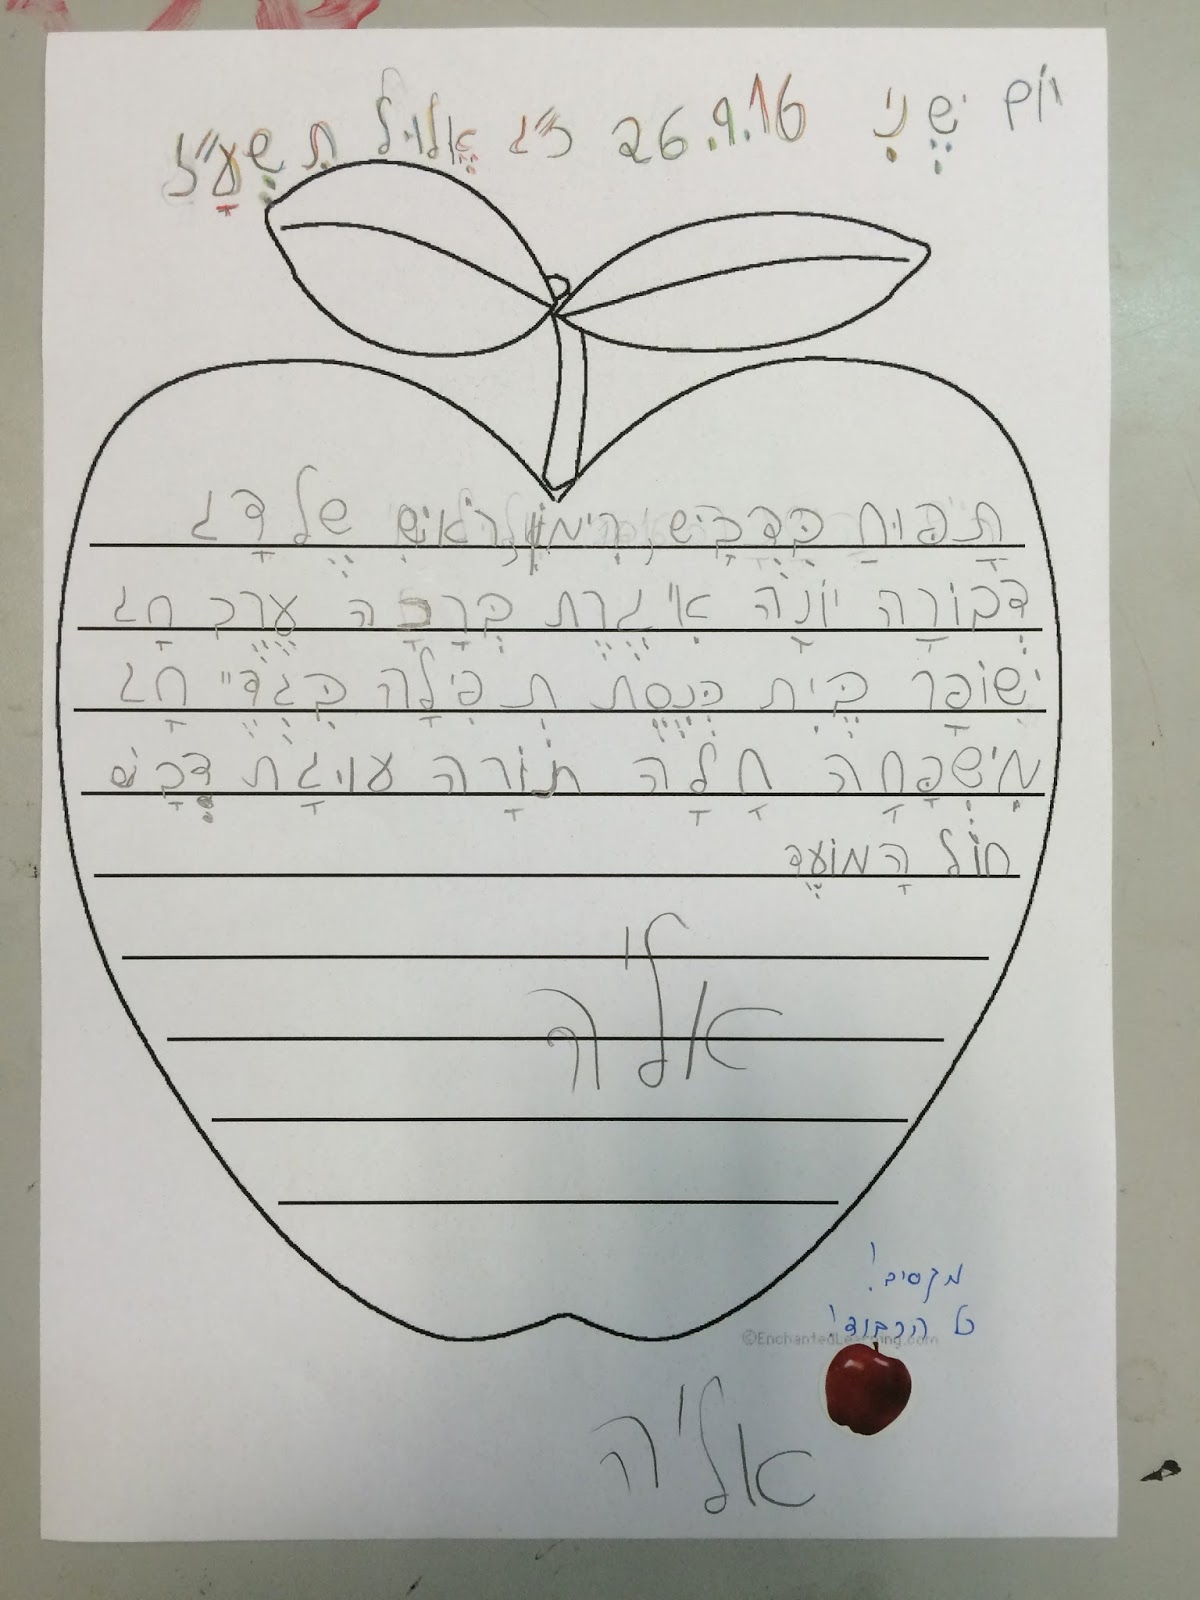 יוֹם שֶׁנִי 26.9.16 כ"ג אֱלוּל תִשֶעָ"ז
תָפּוּחַ בִּדְבָש רִימוֹן רֹאש שֶל דָג
דְבוֹרָה יוֹנָה אִיגֶרֶת בְּרָכָה עֶרֶב חָג
שׁוֹפָר בֶּיִת כְּנֶסֶת תְפִילָה בְּגָדֶיי חָג
מִישְׁפָּחָה חָלָה תוֹרָה עויגָת דְבָש
חוֹל הָמוֹעֶד
אליה
מקסים!
כל הכבוד!
©EnchantedLearning.com
אליה